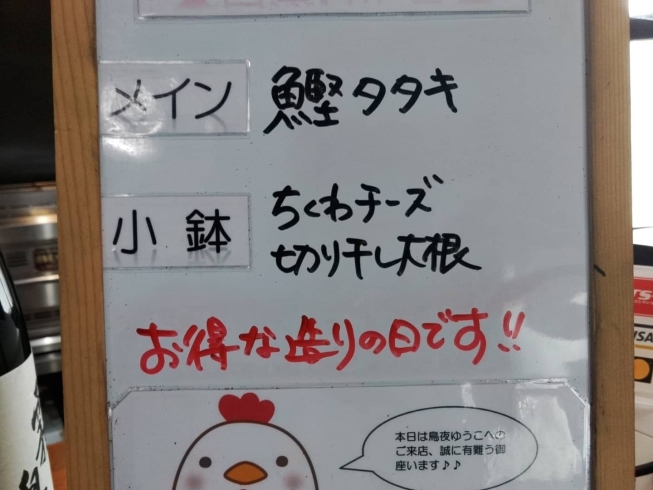 メイン 鰹タタキ
小鉢 ちくわチーズ
切り干し大根
お得な造りの日です!!
本日は鳥夜ゆうこへの
ご来店、誠に有難う御
座います♪♪
VISA